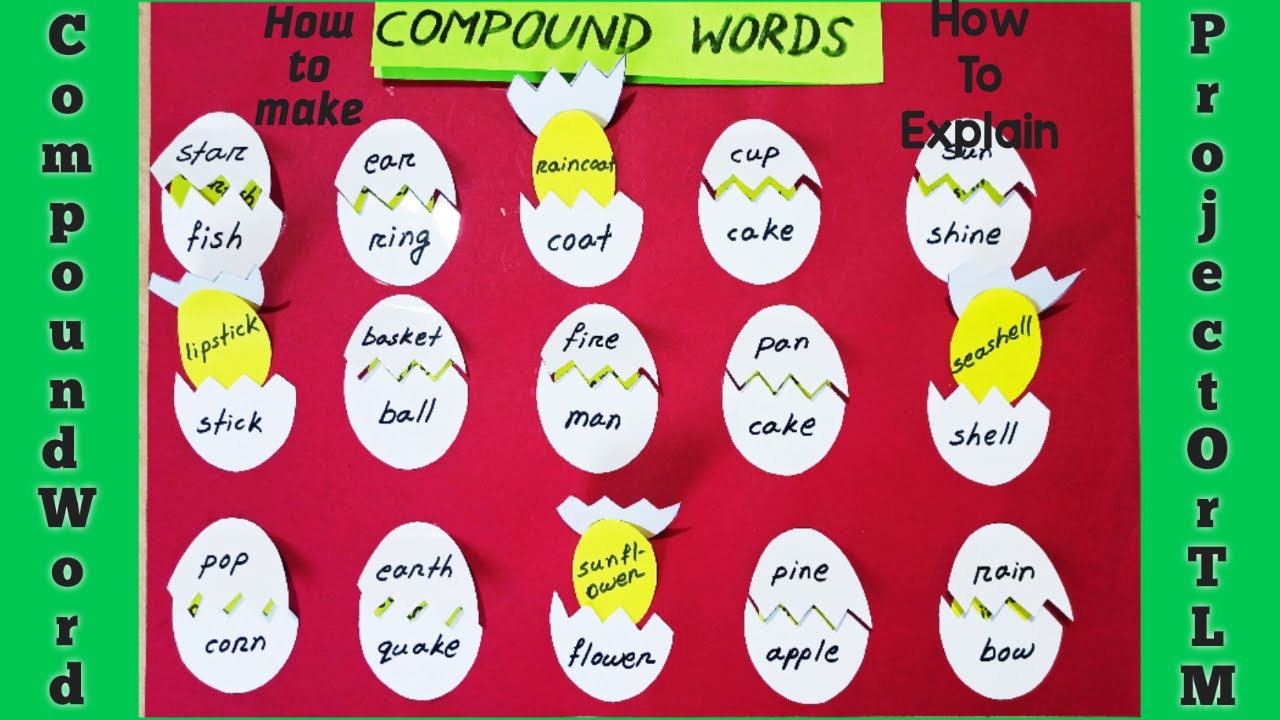 CompoundWord
How
to
make
COMPOUND WORDS
How
To
Explain
ProjectOrTLM
star
fish
ear
ring
raincoat
coat
cup
cake
sun
shine
lipstick
stick
basket
ball
fire
man
pan
cake
seashell
shell
pop
corn
earth
quake
sunfl-
ower
flower
pine
apple
rain
bow